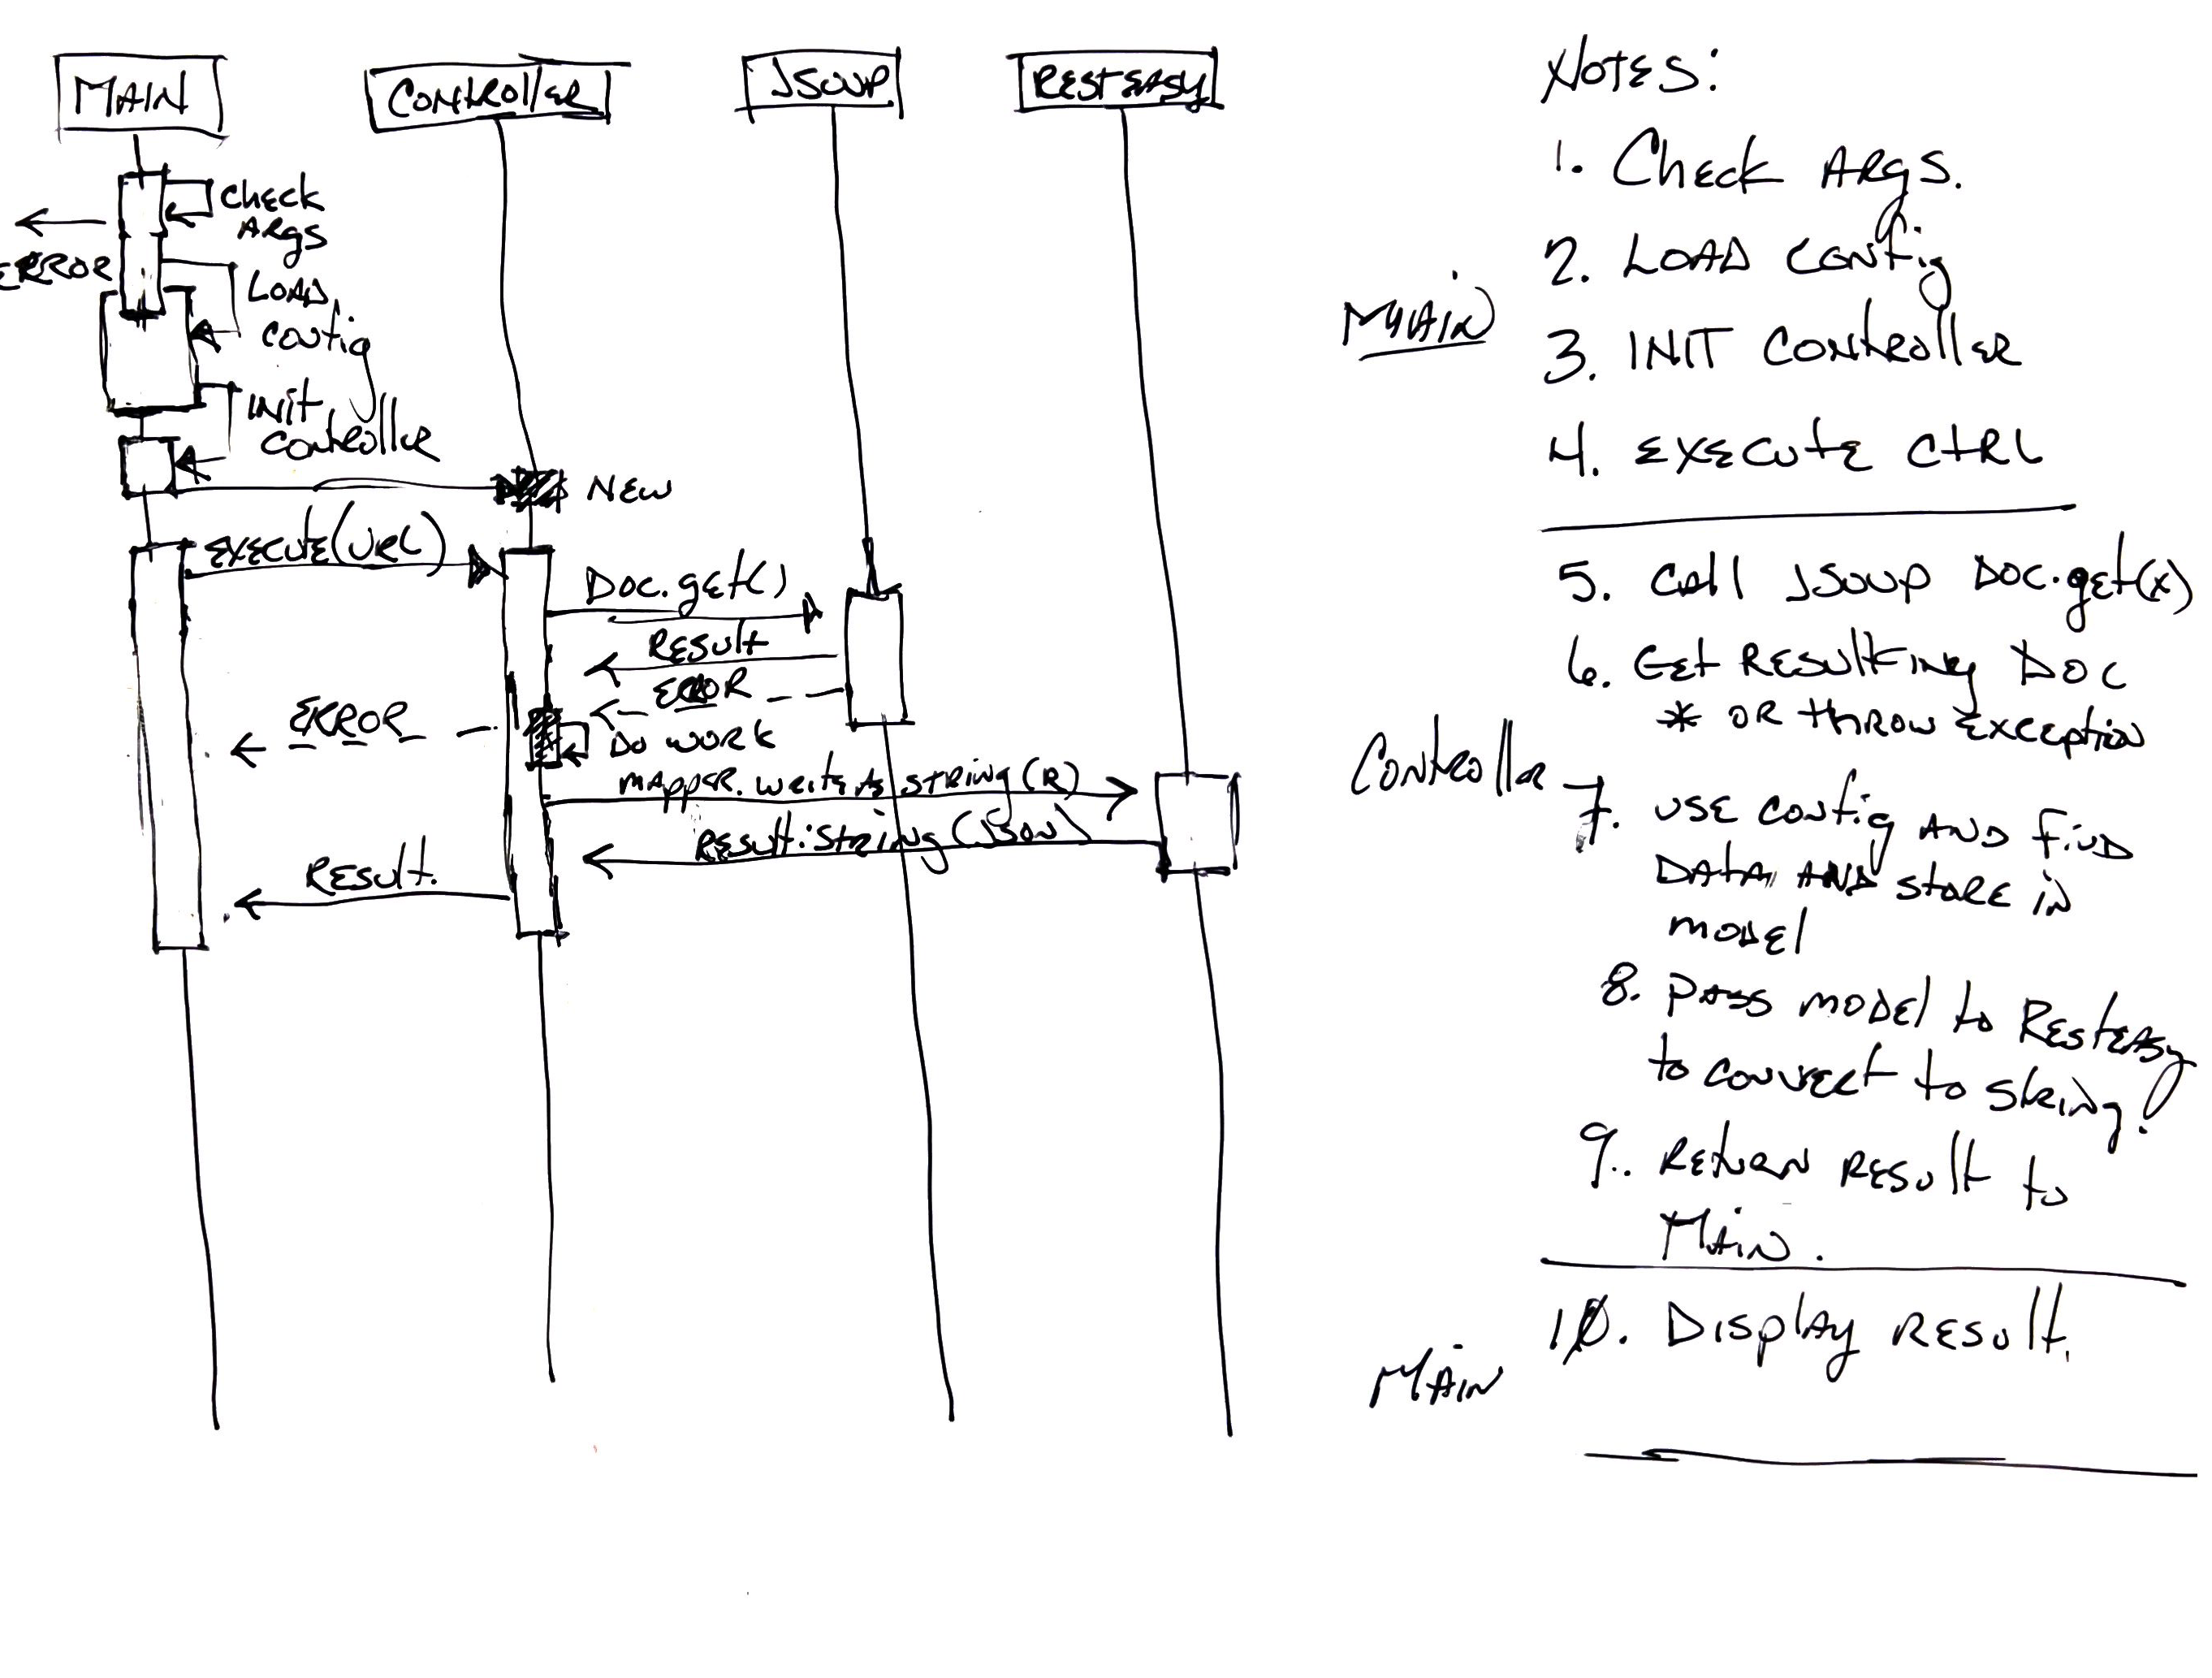 MAIN
CONTROllER
JSOUP
RESTEASY
Check
ARgs
ERROR
LOAD
config
INit
controller
NEW
EXECUTE(URL)
Doc.get()
RESult
ERROR
ERROR
DO WORK
MAPPER.writeAsString(R)
RESult:String(JSON)
RESult.
Notes:
1. Check ARgs.
2. LOAD config
3. INIT CONtROllER
4. EXECUtE CtRL
MAIN
5. Call JSOUP DOC.get(x)
6. Get RESULTiNg Doc
* OR thROW EXCEPtioN
Controller
7. USE config AND FIND
DATA AND StORE iN
MODEl
8. PASS MODEl to REStEASy
to CONVERt to StRiNg!
9.. REtURN RESult to
MAiN.
10. DisplAy RESult.
MAiN